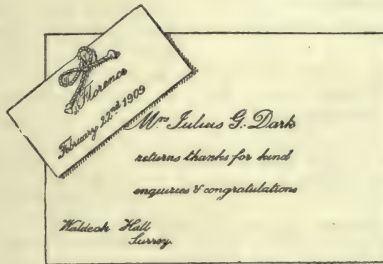 Florence
February 22nd 1909
Mrs Julius G. Dark
returns thanks for kind
enquiries & congratulations
Waldeck Hall
Surrey.